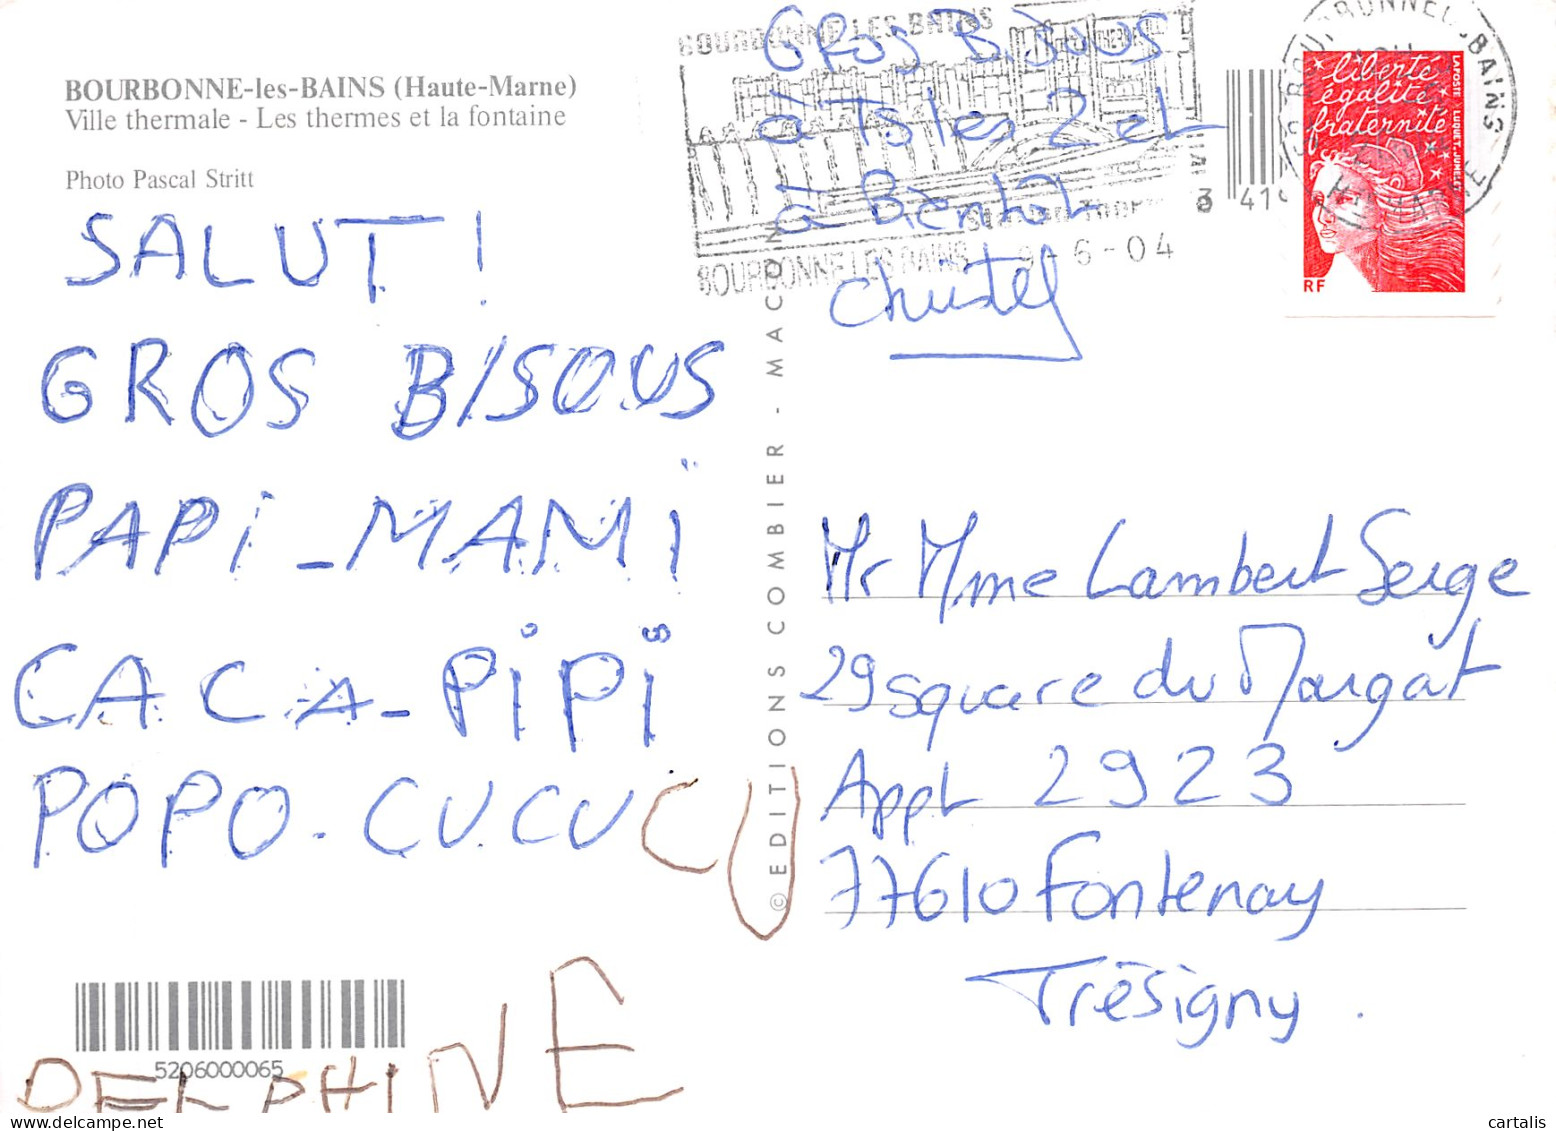 BOURBONNE-les-BAINS (Haute-Marne)
Ville thermale - Les thermes et la fontaine
Photo Pascal Stritt
SALUT !
GROS BISOUS
PAPI-MAMI
CACA-PIPI
POPO.CUCUCU
DELPHINE
5206000065
© EDITIONS COMBIER - MACON
BOURBONNE-LES-BAINS
BOURBONNE LES BAINS 9-6-04
Gros Bisous
à Ts les 2 et
à
Christel
3 41
BOURBONNE LES BAINS
HTE MARNE
liberté
égalité
fraternité
RF
LA POSTE LUQUET-JUMELET
Mr Mme Lambert Serge
29 square du Margat
Appt 2923
77610 Fontenay
Trésigny.
cartalis